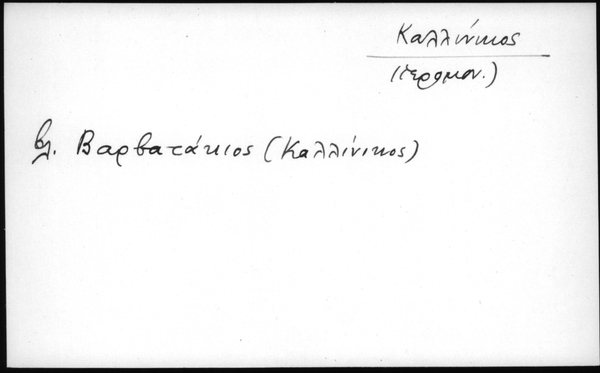 Καλλίνικος
(ιερομον.)
βλ. Βαρβατάκιος (Καλλίνικος)